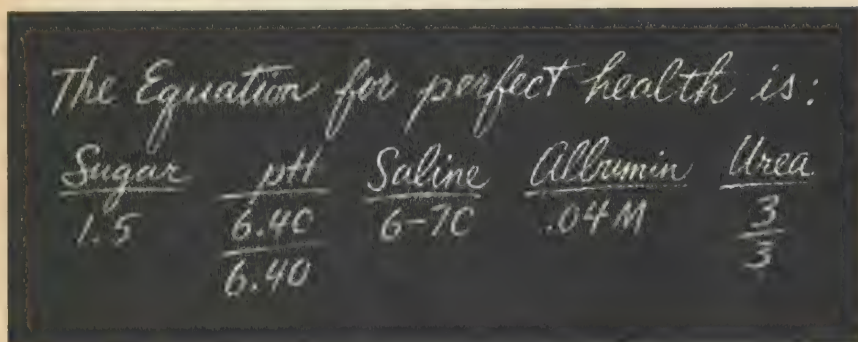 The Equation for perfect health is:
Sugar pH Saline Albumin Urea
1.5 6.40 6-7C .04M 3
6.40 3